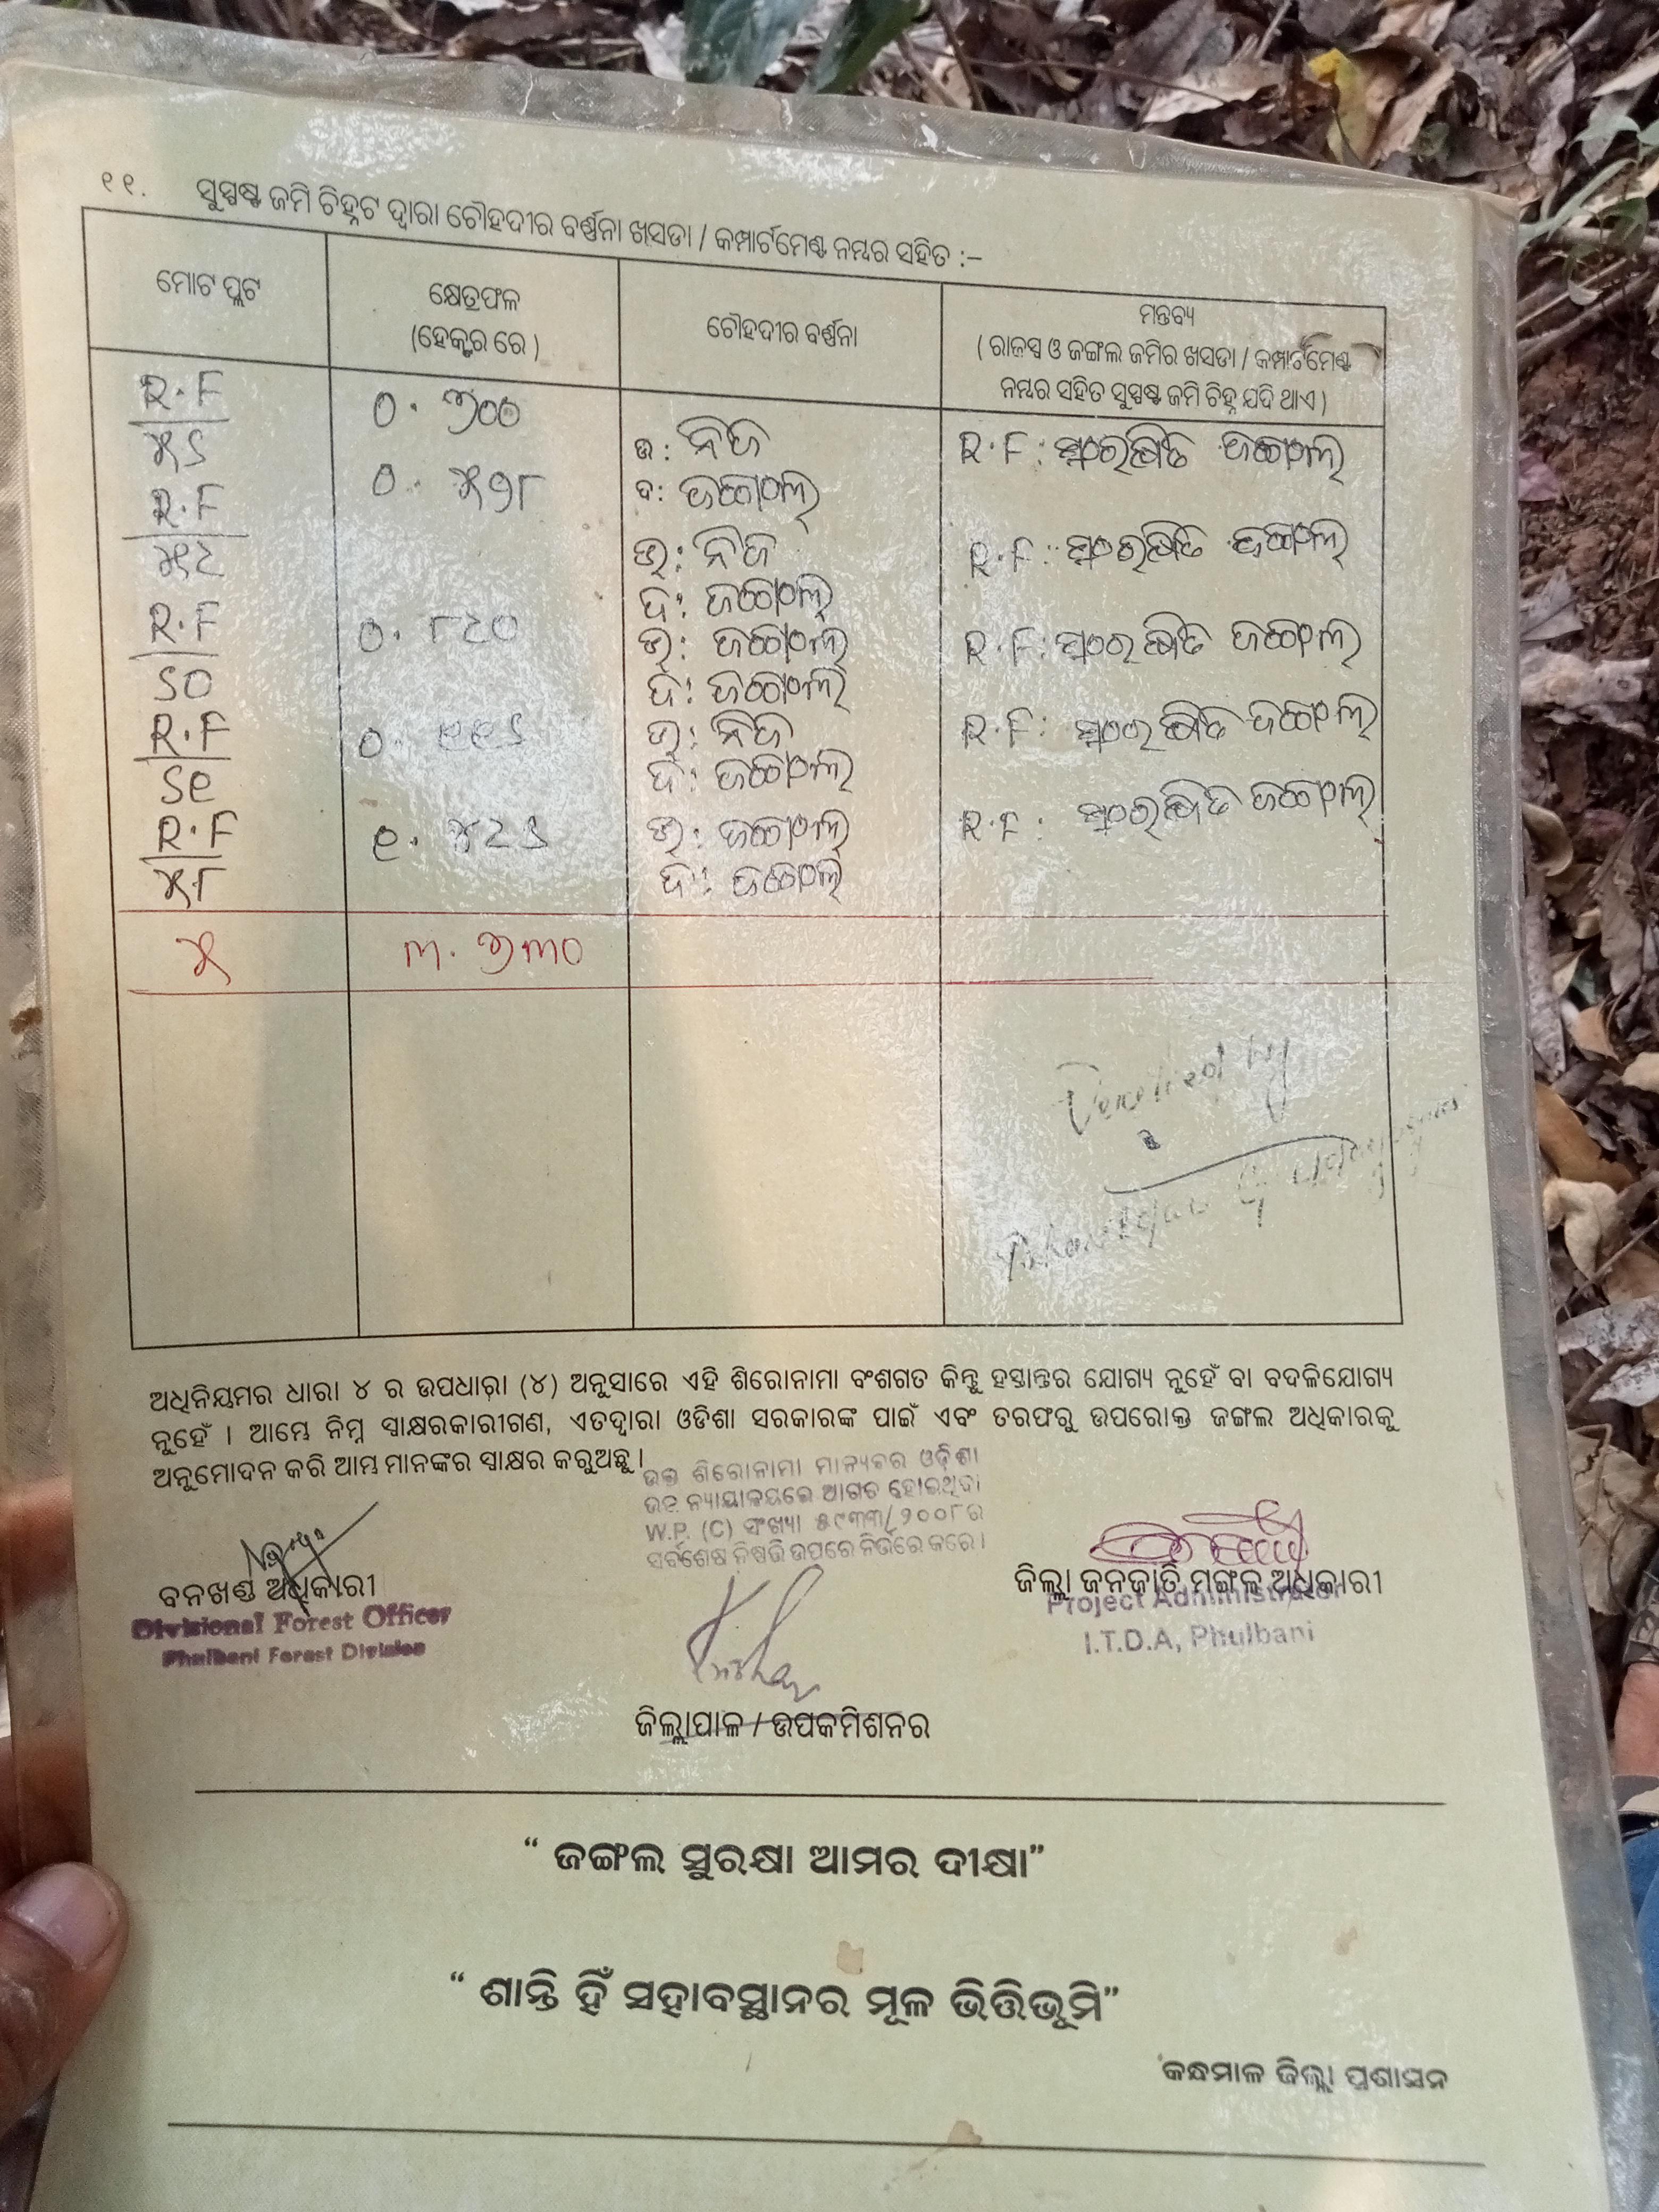 ୧୧. ସୁସ୍ପଷ୍ଟ ଜମି ଚିହ୍ନଟ ଦ୍ୱାରା ଚୌହଦୀର ବର୍ଣ୍ଣନା ଖସଡା / କମ୍ପାର୍ଟମେଣ୍ଟ ନମ୍ବର ସହିତ :–
ମୋଟ ପ୍ଲଟ
କ୍ଷେତ୍ରଫଳ
(ହେକ୍ଟର ରେ )
ଚୌହଦୀର ବର୍ଣ୍ଣନା
ମନ୍ତବ୍ୟ
( ରାଜସ୍ୱ ଓ ଜଙ୍ଗଲ ଜମିର ଖସଡା / କମ୍ପାର୍ଟମେଣ୍ଟ
ନମ୍ବର ସହିତ ସୁସ୍ପଷ୍ଟ ଜମି ଚିହ୍ନ ଯଦି ଥାଏ )
R.F
୫୨
୦. ୬୦୦
ଉ: ନିଜ
ଦ: ଜଙ୍ଗଲ
R.F: ସଂରକ୍ଷିତ ଜଙ୍ଗଲ
R.F
୦. ୫୭୮
ଉ: ନିଜ
ଦ: ଜଙ୍ଗଲ
R.F: ସଂରକ୍ଷିତ ଜଙ୍ଗଲ
R.F
ଉ: ଜଙ୍ଗଲ
ଦ: ଜଙ୍ଗଲ
R.F: ସଂରକ୍ଷିତ ଜଙ୍ଗଲ
R.F
ଉ: ନିଜ
ଦ: ଜଙ୍ଗଲ
R.F: ସଂରକ୍ଷିତ ଜଙ୍ଗଲ
R.F
୫୮
ଉ: ଜଙ୍ଗଲ
ଦ: ଜଙ୍ଗଲ
R.F: ସଂରକ୍ଷିତ ଜଙ୍ଗଲ
୫ ୩. ୬୩୦
ଅଧିନିୟମର ଧାରା ୪ ର ଉପଧାରା (୪) ଅନୁସାରେ ଏହି ଶିରୋନାମା ବଂଶଗତ କିନ୍ତୁ ହସ୍ତାନ୍ତର ଯୋଗ୍ୟ ନୁହେଁ ବା ବଦଳିଯୋଗ୍ୟ
ନୁହେଁ । ଆମ୍ଭେ ନିମ୍ନ ସ୍ୱାକ୍ଷରକାରୀଗଣ, ଏତଦ୍ୱାରା ଓଡିଶା ସରକାରଙ୍କ ପାଇଁ ଏବଂ ତରଫରୁ ଉପରୋକ୍ତ ଜଙ୍ଗଲ ଅଧିକାରକୁ
ଅନୁମୋଦନ କରି ଆମ୍ଭ ମାନଙ୍କର ସ୍ୱାକ୍ଷର କରୁଅଛୁ ।
ଉକ୍ତ ଶିରୋନାମା ମାନ୍ୟବର ଓଡ଼ିଶା
ଉଚ୍ଚ ନ୍ୟାୟାଳୟରେ ଆଗତ ହୋଇଥିବା
W.P. (C) ସଂଖ୍ୟା ୫୯୩୩/୨୦୦୮ର
ସର୍ବଶେଷ ନିଷ୍ପତ୍ତି ଉପରେ ନିର୍ଭରେ କରେ ।
ବନଖଣ୍ଡ ଅଧିକାରୀ
Divisional Forest Officer
Phulbani Forest Division
ଜିଲ୍ଲା ଜନଜାତି ମଙ୍ଗଳ ଅଧିକାରୀ
Project Administrator
I.T.D.A, Phulbani
ଜିଲ୍ଲାପାଳ / ଉପକମିଶନର
“ ଜଙ୍ଗଲ ସୁରକ୍ଷା ଆମର ଦୀକ୍ଷା”
“ ଶାନ୍ତି ହିଁ ସହାବସ୍ଥାନର ମୂଳ ଭିତ୍ତିଭୂମି”
କନ୍ଧମାଳ ଜିଲ୍ଲା ପ୍ରଶାସନ